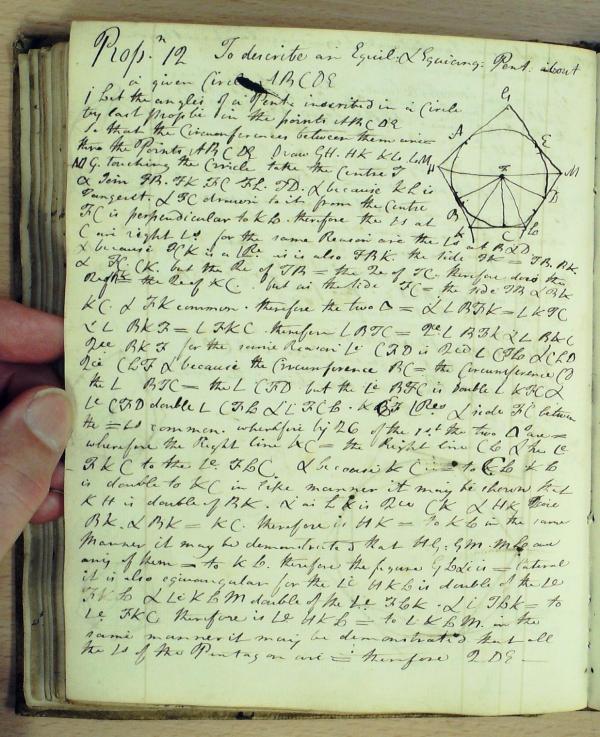 Prop.n 12 To describe an Equil: & Equiang: Pent. about
a given Circle ABCDE
Let the angles of a Pent: inscribed in a Circle
by last Prop be in the points ABCDE
so that the Circumferences between them are =
thro the Points ABCDE Draw GH. HK KL LM
MG. touching the Circle take the Centre F
& Join FB. FK FC FL. FD. & because KL is
Tangent. & FC drawn to it from the Centre
FC is perpendicular to KL. therefore the Ls at
C are right Ls for the same Reason are the Ls at B & D
& because FCK is a is also FBK. the side FK = FB. BK.
& FC. CK. but the of FB = the of FC. therefore does the
the of KC. but as the side FC = the side FB & BK
KC. & FK common. therefore the two = & L BFK = L KFC
& L BKF = L FKC therefore L BFC = L BFK & L BKC
BKF for the same Reason Le CFD is L CFL & CLD
CLF & because the Circumference BC = the Circumference CD
the L BFC = the L CFD but the Le BFC is double L KFC &
Le CFD double L CFL & L FCL. KCF & side FC between
the = Ls common. wherefore by 26 of the 1st the two are =
wherefore the Right line KC = the Right line CL & the Le
FKC to the Le FLC. & because KC is = to CL KL
is double to KC in like manner it may be shown that
KH is double of BK. & as LK is CK & HK
BK. & BK = KC. therefore is HK = to KL in the same
manner it may be demonstrated that HG: GM. ML are
any of them = to KL. therefore the figure is = lateral
it is also equiangular for the Le HKL is double of the Le
FKL & Le KLM double of the Le FLK. & L FLK = to
Le FKC therefore is Le HKL = to L KLM. in the
same manner it may be demonstrated that all
the Ls of the Pentagon are = therefore QDE
G
A
E
H
F
M
B
D
K
C
L